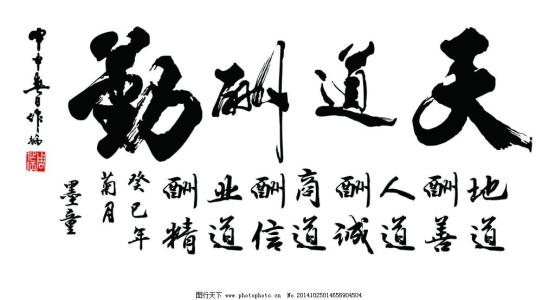 天道酬勤
地道
酬善
人道
酬诚
商道
酬信
业道
酬精
癸巳年
菊月
墨童
甲申
图行天下 www.photophoto.cn No.20141025014656904504